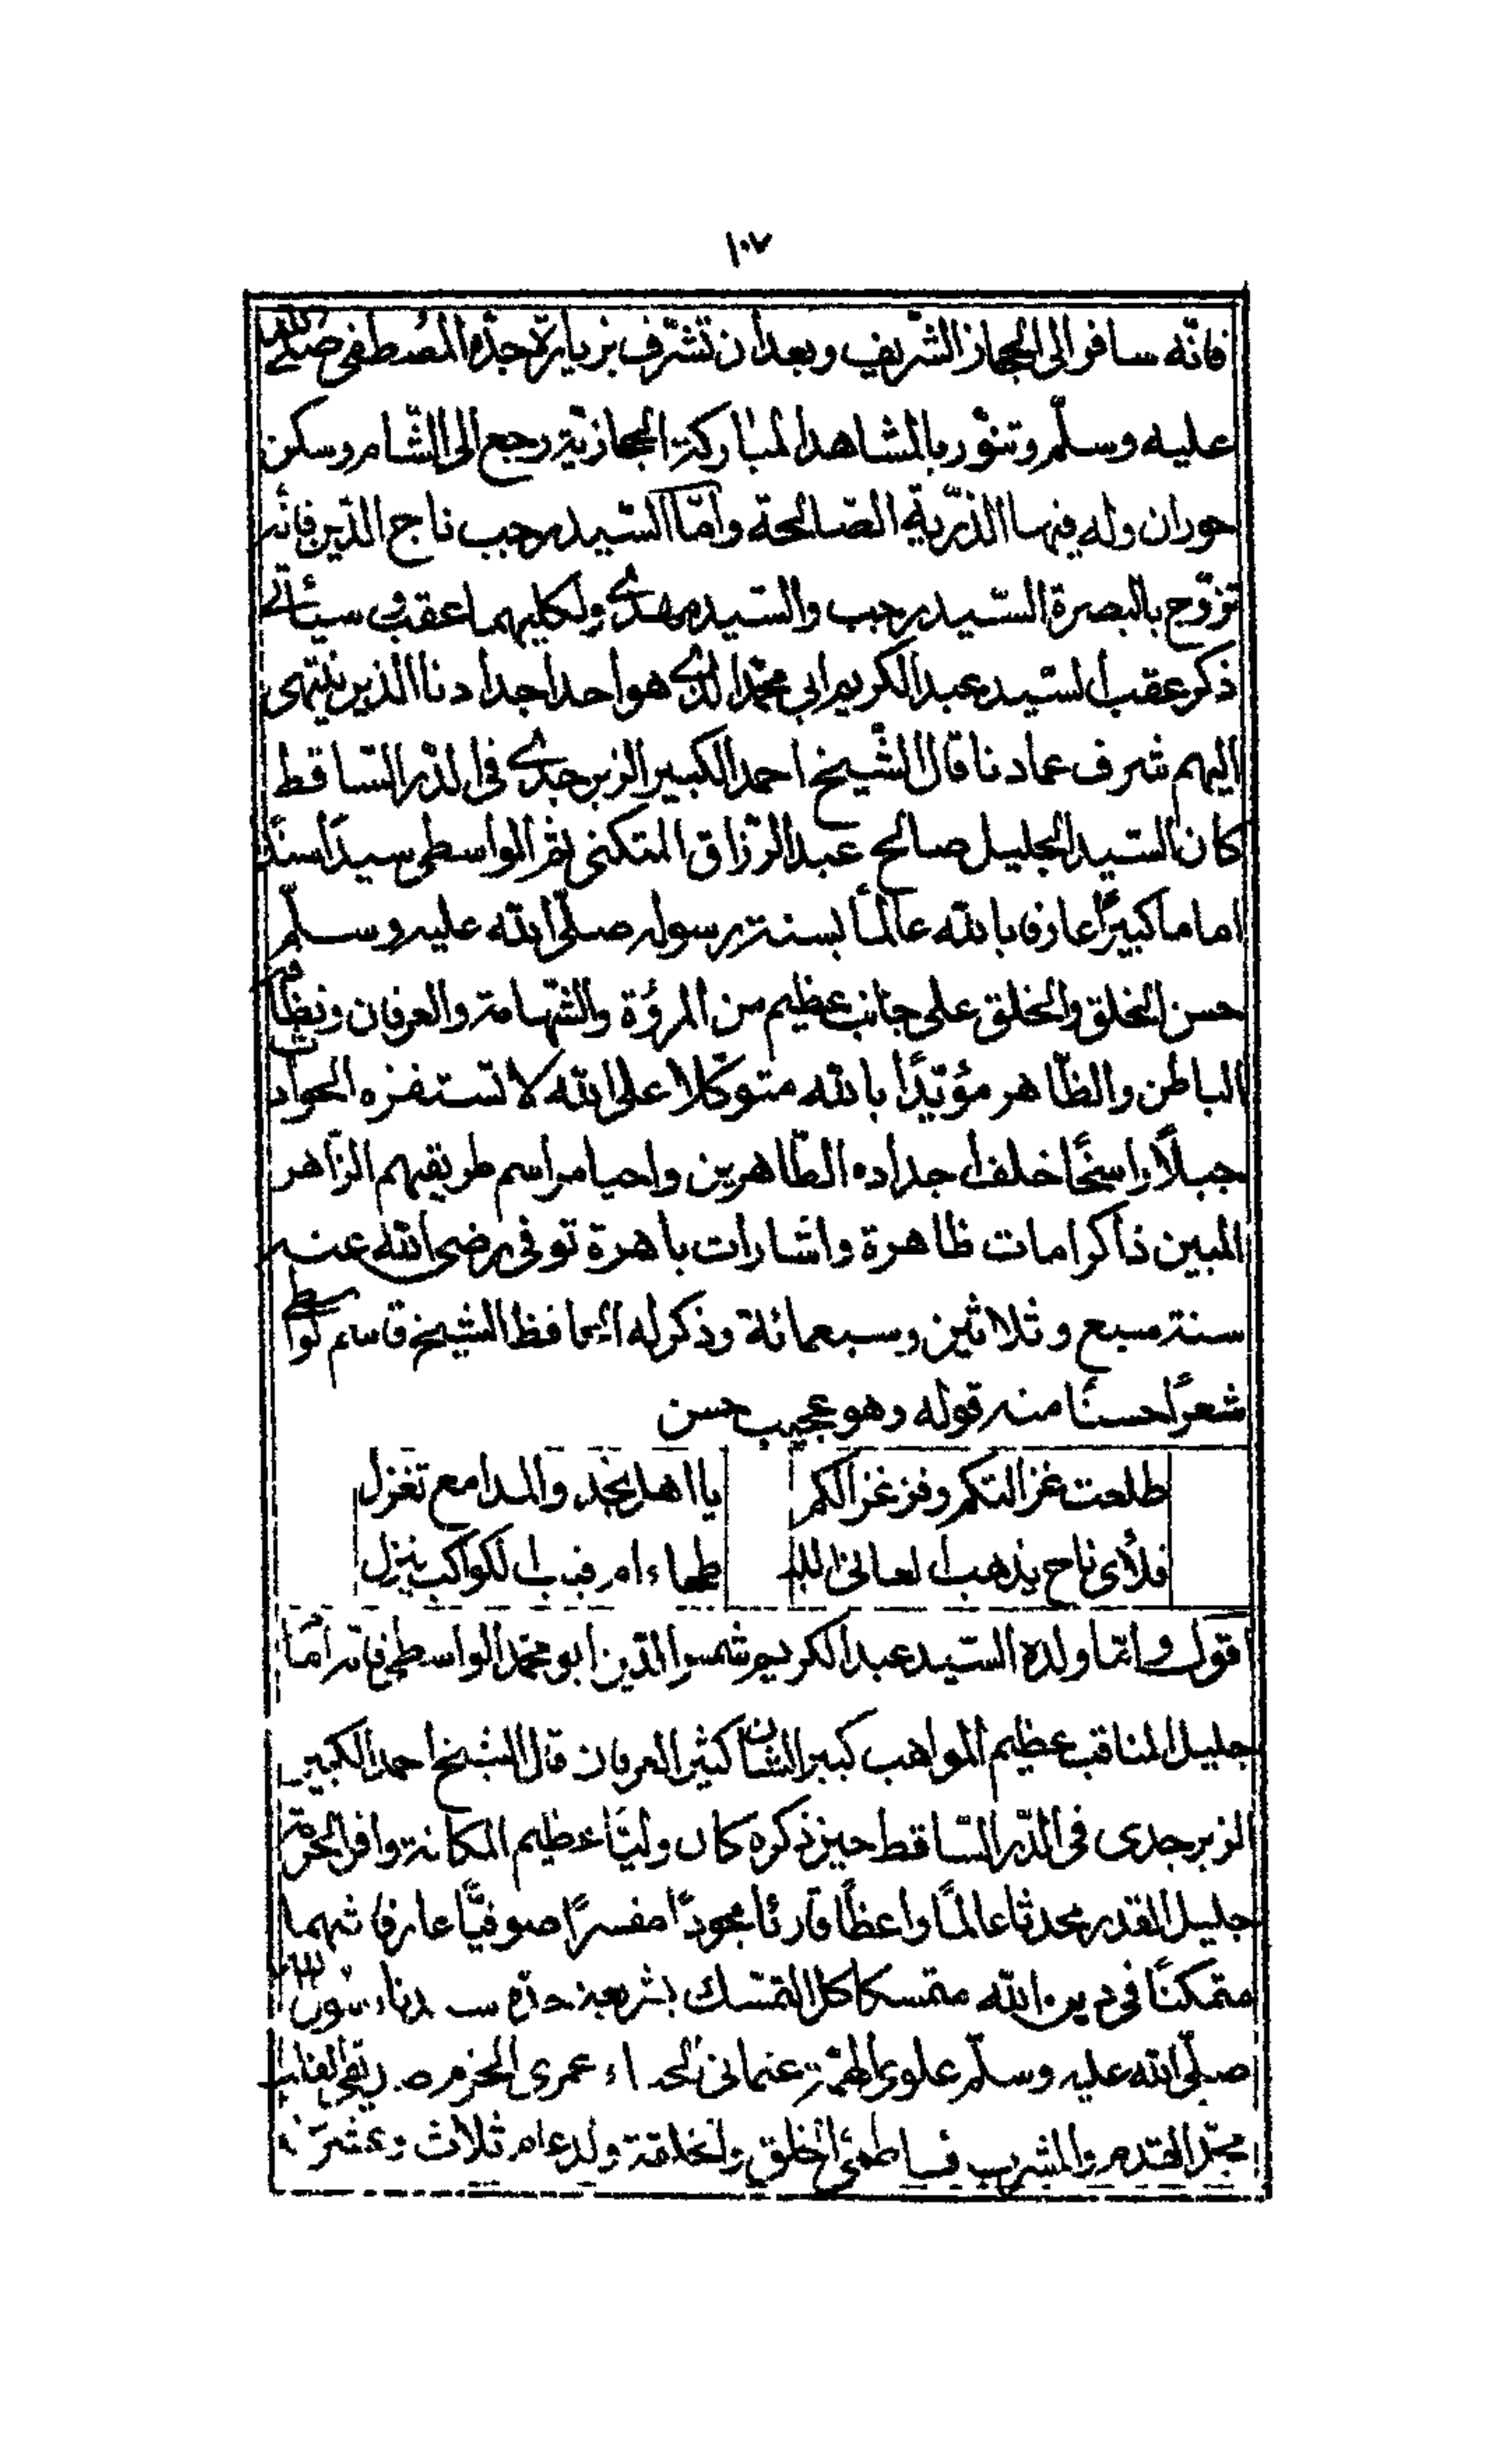 ١٠٧
فانّه سافر الى الحجاز الشّريف وبعد ان تشرّف بزيارة جدّه المصطفى صلّى الله
عليه وسلّم وتنوّر بالمشاهد المباركة الحجازيّة رجع الى الشّام وسكن
حوران وله فيها الذّرّيّة الصّالحة وامّا السّيد رجب تاج الدّين فانّه
تزوّج بالبصرة السّيد رجب والسّيد مهدى ولكليهما عقب وسيأتى
ذكر عقب السّيد عبد الكريم ابى محمّد الذى هو احد اجدادنا الذين ينتهى
اليهم شرف عمادنا قال الشّيخ احمد الكبير الزبرجدى فى الدّر السّاقط
كان السّيد الجليل صالح عبد الرّزاق المتكنى ثم الواسطى سيدًا سندًا
اماما كبيرًا عارفا بالله عالمًا بسنة رسوله صلّى الله عليه وسلّم
حسن الخلق والخلق على جانب عظيم من المروّة والشّهامة والعرفان ونظام
الباطن والظّاهر مؤيّدًا بالله متوكّلا على الله لا تستفزه الحوادث
جبلاً راسخًا خلف اجداده الطّاهرين واحيا مراسم طريقهم الزّاهر
المبين ذا كرامات ظاهرة واشارات باهرة توفى رضى الله عنه
سنة سبع وثلاثين وسبعمائة وذكر له الحافظ الشيخ قاسم الواسطى
شعرًا حسنًا منه قوله وهو عجيب حسن
طلعت غزالتكم وفز غزالكم يا اهل نجد والمدامع تغزل
فلأى ناح يذهب العانى الى طهاء ام رقباب الكواكب ينزل
اقول وامّا ولده السّيد عبد الكريم شمس الدّين ابو محمّد الواسطى فانه امّا
جليل المناقب عظيم المواهب كبير الشان كثير العرفان قال الشيخ احمد الكبير
الزبرجدى فى الدّر السّاقط حين ذكره كان وليّا عظيم المكانة وافر الحرمة
جليل القدر محدثا عالمًا واعظًا قارئا مجودًا مفسرًا صوفيًّا عارفا شهما
متمكنًا فى دين الله متمسكا كل التمسّك بشريعة جده سيدنا رسول الله
صلّى الله عليه وسلّم علوى الهمّة عثمانى الحياء عمرى الحزم صديقى القلب
القدم والمشرب فاطمى الخلق والخلقة ولد عام ثلاث وعشر